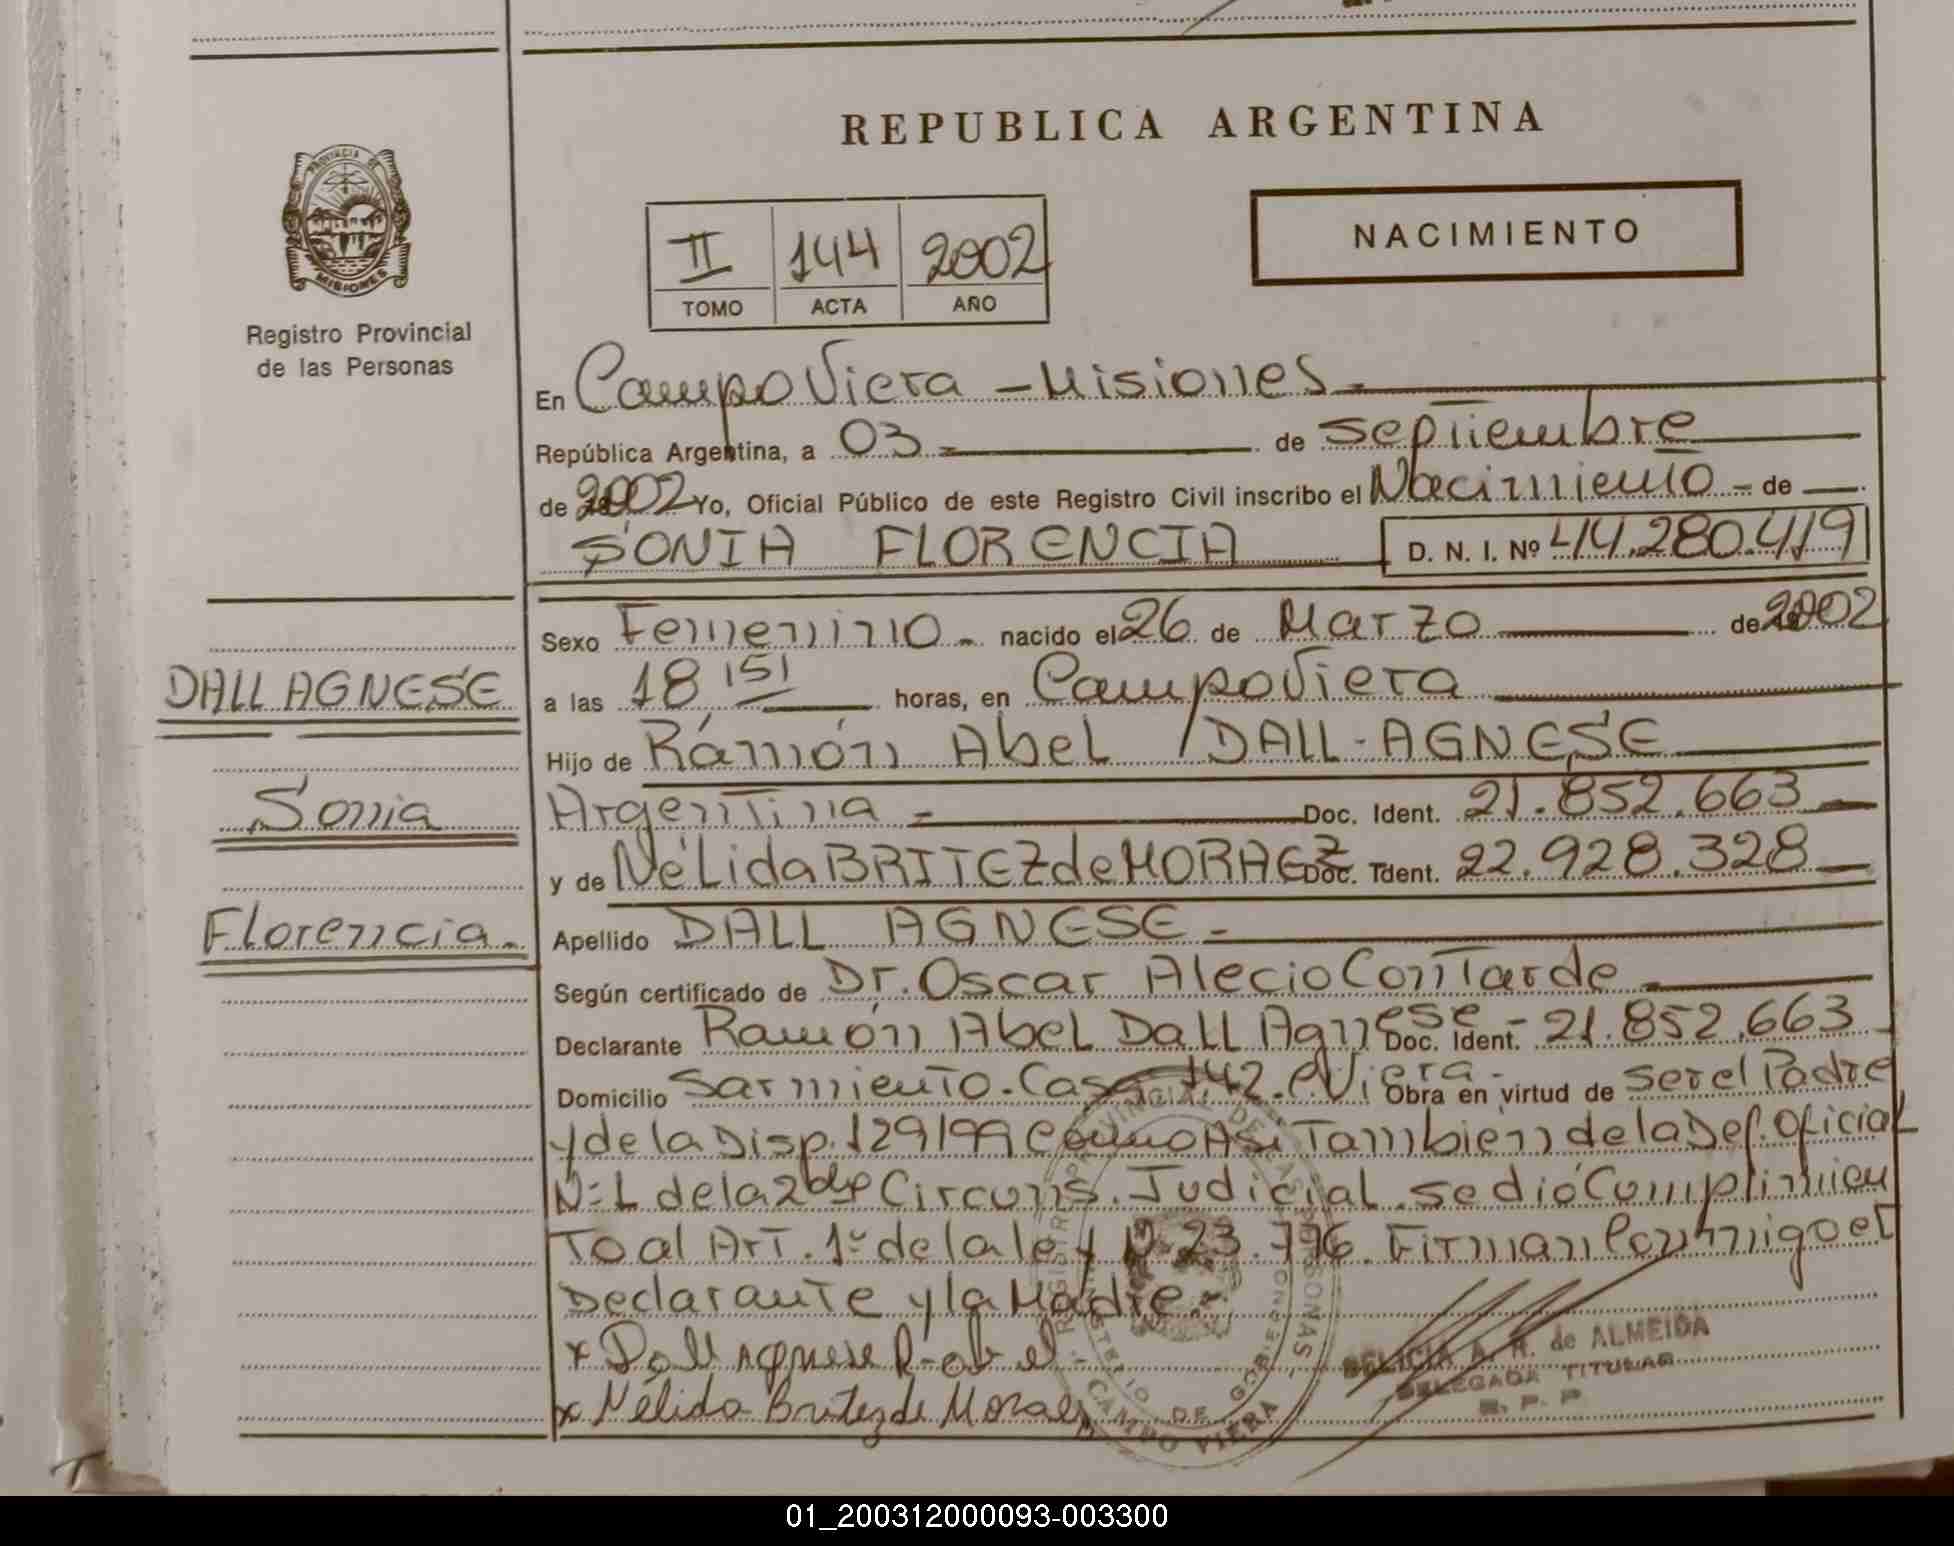 REPUBLICA ARGENTINA
PROVINCIA DE
MISIONES
Registro Provincial
de las Personas
II 144 2002
TOMO ACTA AÑO
NACIMIENTO
En Campo Viera - Misiones -
República Argentina, a 03 - de septiembre
de 2002 Yo, Oficial Público de este Registro Civil inscribo el Nacimiento - de
SONIA FLORENCIA D. N. I. Nº 44.280.419
DALL AGNESE
Sonia
Florencia.
Sexo Femenino - nacido el 26 de Marzo de 2002
a las 18 15' horas, en Campo Viera
Hijo de Ramón Abel DALL-AGNESE
Argentina - Doc. Ident. 21.852.663
y de NéLida BRITEZ de MORAEZ Doc. Ident. 22.928.328
Apellido DALL AGNESE -
Según certificado de Dr. Oscar Alecio Contarde
Declarante Ramón Abel Dall Agnese - Doc. Ident. 21.852.663
Domicilio Sarmiento. Casa 142. C. Viera - Obra en virtud de ser el Padre
y de la Disp. 129/99 Como Asi Tambien de la Def. Oficial
Nº 1 de la 2da Circuns. Judicial. se dió Cumplimien
To al Art. 1º de la ley N. 23.776. Firman Conmigo el
Declarante y la Madre.-
x Dall Agnese R. abel.
x Nélida Britez de Moraez
REGISTRO PROVINCIAL DE LAS PERSONAS
MINISTERIO DE GOBIERNO
CAMPO VIERA
A. H. de ALMEIDA
DELEGADA TITULAR
R. P. P.
01_200312000093-003300